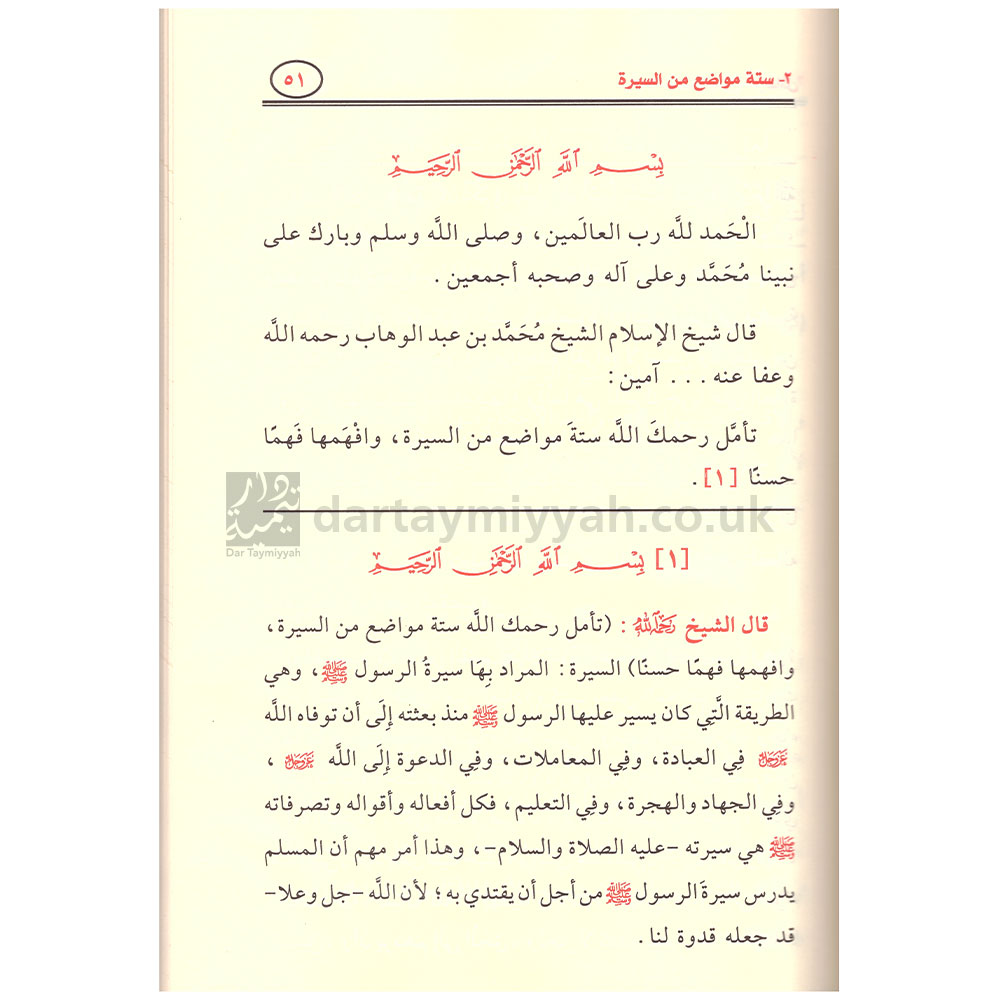 ٢- ستة مواضع من السيرة
٥١
بِسْمِ اللَّهِ الرَّحْمَٰنِ الرَّحِيمِ
الْحَمد للَّه رب العالَمين، وصلى اللَّه وسلم وبارك على
نبينا مُحَمَّد وعلى آله وصحبه أجمعين.
قال شيخ الإسلام الشيخ مُحَمَّد بن عبد الوهاب رحمه اللَّه
وعفا عنه ... آمين:
تأمَّل رحمكَ اللَّه ستةَ مواضع من السيرة، وافْهَمها فَهمًا
حسنًا [١].
دار تيمية
Dar Taymiyyah
dartaymiyyah.co.uk
[١] بِسْمِ اللَّهِ الرَّحْمَٰنِ الرَّحِيمِ
قال الشيخ رَحِمَهُ اللَّهُ: (تأمل رحمك اللَّه ستة مواضع من السيرة،
وافهمها فهمًا حسنًا) السيرة: المراد بِهَا سيرةُ الرسول ﷺ، وهي
الطريقة الَّتِي كان يسير عليها الرسول ﷺ منذ بعثته إلَى أن توفاه اللَّه
عَزَّ وَجَلَّ فِي العبادة، وفِي المعاملات، وفِي الدعوة إلَى اللَّه عَزَّ وَجَلَّ،
وفِي الجهاد والهجرة، وفِي التعليم، فكل أفعاله وأقواله وتصرفاته
ﷺ هي سيرته -عليه الصلاة والسلام-، وهذا أمر مهم أن المسلم
يدرس سيرةَ الرسول ﷺ من أجل أن يقتدي به؛ لأن اللَّه -جل وعلا-
قد جعله قدوة لنا.